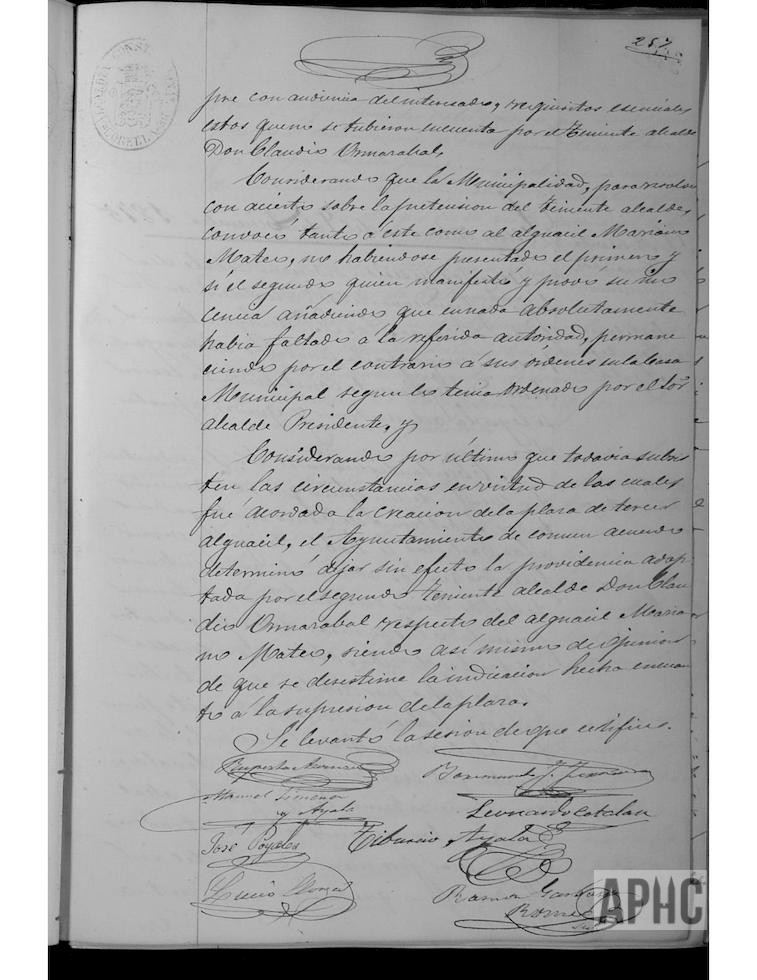 257
pre con audiencia del interesado, requisitos esenciales
estos que no se tubieron en cuenta por el Teniente alcalde
Don Claudio Ormarabal,
Considerando que la Municipalidad, para resolver
con acierto sobre la pretension del teniente alcalde,
convocó tanto á éste como al alguacil Mariano
Mateo, no habiendose presentado el primero y
si el segundo quien manifestó y provó su ino
cencia añadiendo que en nada absolutamente
habia faltado á la referida autoridad, permane
ciendo por el contrario á sus órdenes en la Casa
Municipal segun lo tenia ordenado por el Sor
alcalde Presidente, y
Considerando por último que todavia subsis
ten las circunstancias en virtud de las cuales
fué acordada la creacion de la plaza de tercer
alguacil, el Ayuntamiento de comun acuerdo
determinó dejar sin efecto la providencia adop
tada por el segundo teniente alcalde Don Clau
dio Ormarabal respecto del alguacil Maria
no Mateo, siendo así mismo de opinion
de que se desestime la indicacion hecha en cuan
to á la supresion de la plaza.
Se levantó la sesion de que certifico.
Ruperto
Raimundo J.
Manuel Simeno
y Ayala
Leonardo Catalan
José Poyales
Tiburcio Ayala
Lucio
Ramon
Romeo
APHC